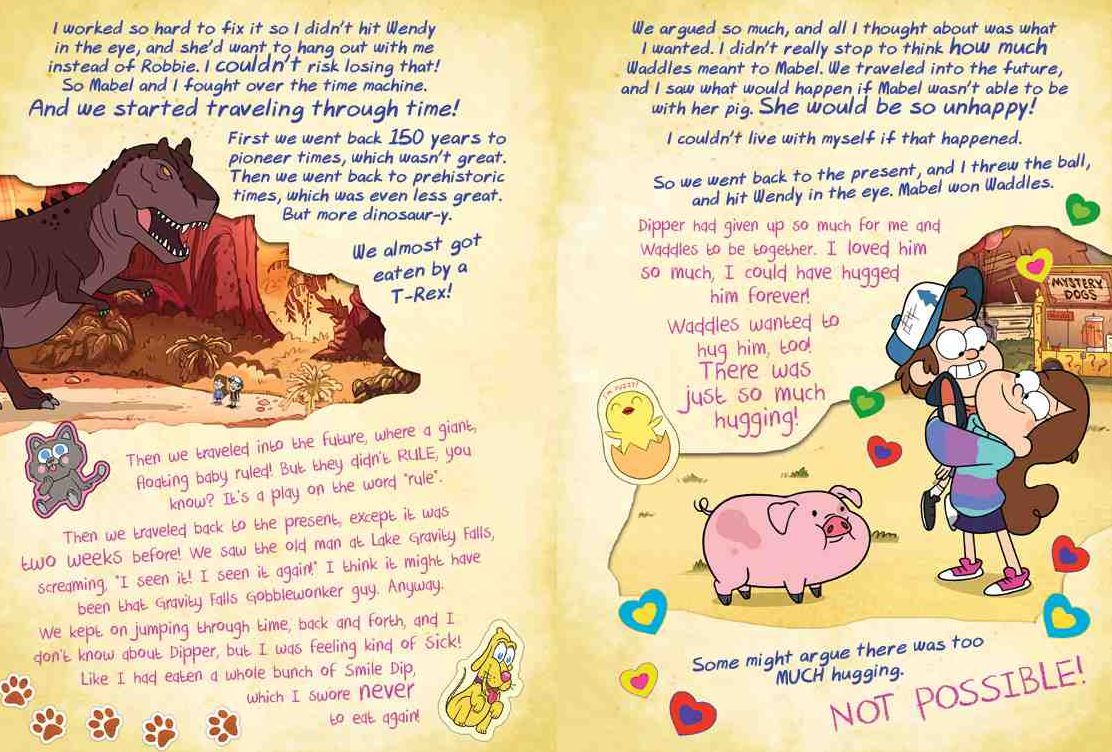 I worked so hard to fix it so I didn't hit Wendy
in the eye, and she'd want to hang out with me
instead of Robbie. I couldn't risk losing that!
So Mabel and I fought over the time machine.
And we started traveling through time!
First we went back 150 years to
pioneer times, which wasn't great.
Then we went back to prehistoric
times, which was even less great.
But more dinosaur-y.
We almost got
eaten by a
T-Rex!
Then we traveled into the future, where a giant,
floating baby ruled! But they didn't RULE, you
know? It's a play on the word "rule".
Then we traveled back to the present, except it was
two weeks before! We saw the old man at Lake Gravity Falls,
screaming, "I seen it! I seen it again!" I think it might have
been that Gravity Falls Gobblewonker guy. Anyway.
We kept on jumping through time, back and forth, and I
don't know about Dipper, but I was feeling kind of Sick!
Like I had eaten a whole bunch of Smile Dip,
which I swore never
to eat again!
We argued so much, and all I thought about was what
I wanted. I didn't really stop to think how much
Waddles meant to Mabel. We traveled into the future,
and I saw what would happen if Mabel wasn't able to be
with her pig. She would be so unhappy!
I couldn't live with myself if that happened.
So we went back to the present, and I threw the ball,
and hit Wendy in the eye. Mabel won Waddles.
Dipper had given up so much for me and
Waddles to be together. I loved him
so much, I could have hugged
him forever!
Waddles wanted to
hug him, too!
There was
just so much
hugging!
MYSTERY
DOGS
I'm fuzzy!
Some might argue there was too
MUCH hugging.
NOT POSSIBLE!